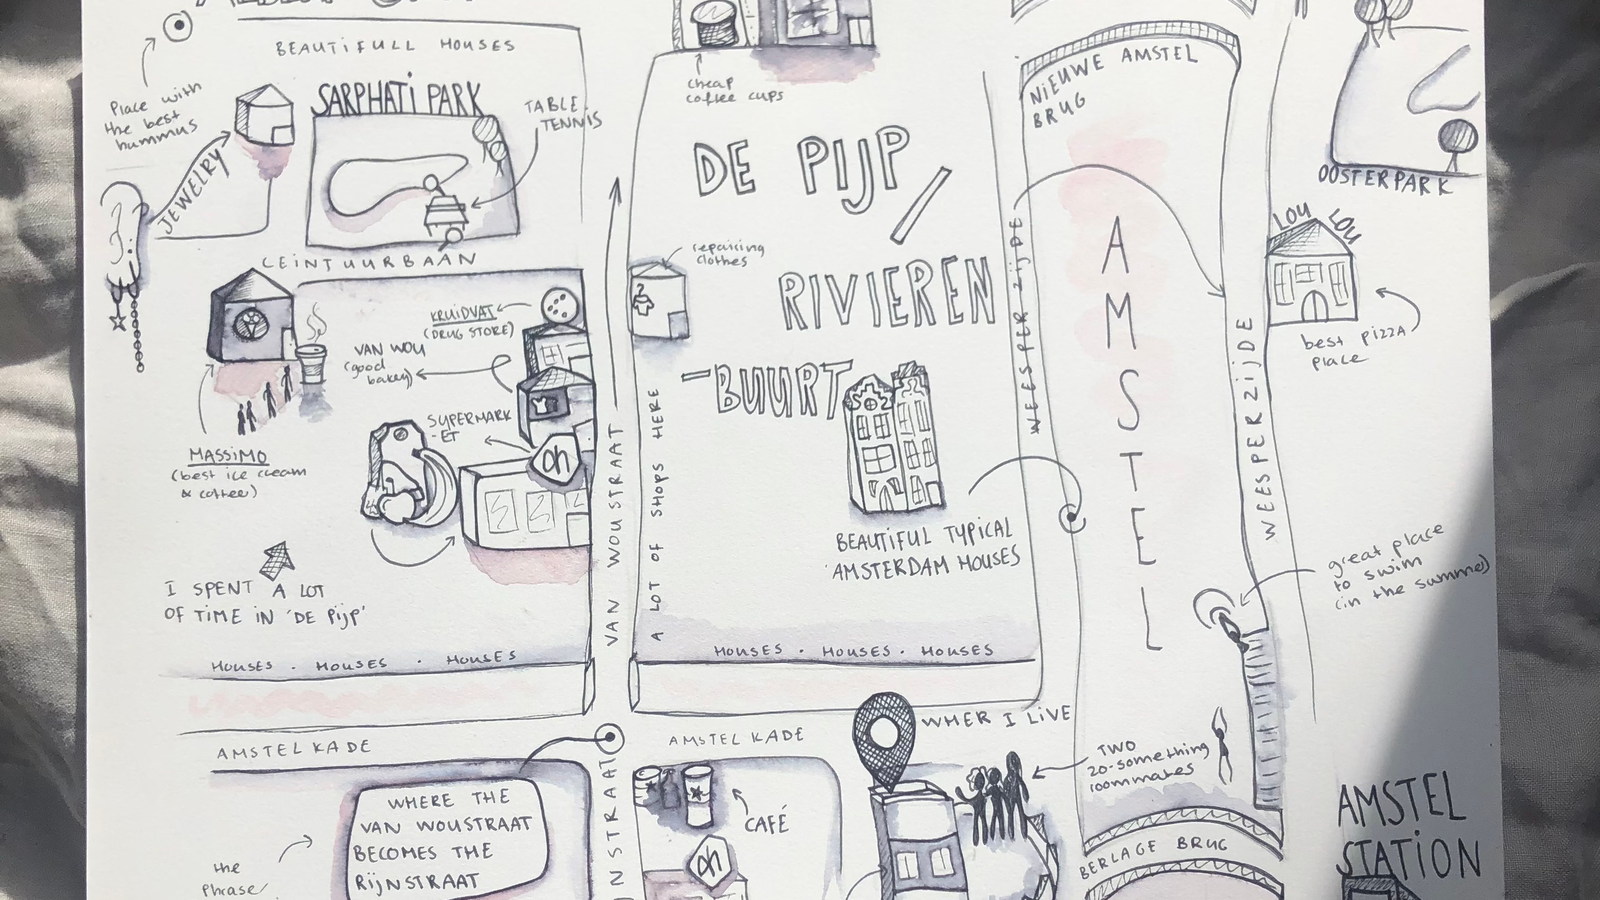 BEAUTIFULL HOUSES
Place with
the best
hummus
JEWELRY
SARPHATI PARK
TABLE
TENNIS
CEINTUURBAAN
KRUIDVAT
(DRUG STORE)
VAN WOU
(good
bakey)
SUPERMARK
-ET
ah
MASSIMO
(best ice cream
& coffee)
I SPENT A LOT
OF TIME IN 'DE PIJP'
HOUSES . HOUSES . HOUSES
VAN WOUSTRAAT
A LOT OF SHOPS HERE
cheap
coffee cups
DE PIJP /
RIVIEREN
-BUURT
repairing
clothes
BEAUTIFUL TYPICAL
AMSTERDAM HOUSES
HOUSES . HOUSES . HOUSES
NIEUWE AMSTEL
BRUG
WEESPER ZIJDE
AMSTEL
WEESPER ZIJDE
OOSTERPARK
LOU LOU
best pizza
place
great place
to swim
(in the summer)
AMSTELKADE
AMSTELKADE
WHERE THE
VAN WOUSTRAAT
BECOMES THE
RIJNSTRAAT
the
phrase
NSTRAAT
CAFÉ
ah
WHER I LIVE
TWO
20-something
roommates
BERLAGE BRUG
AMSTEL
STATION